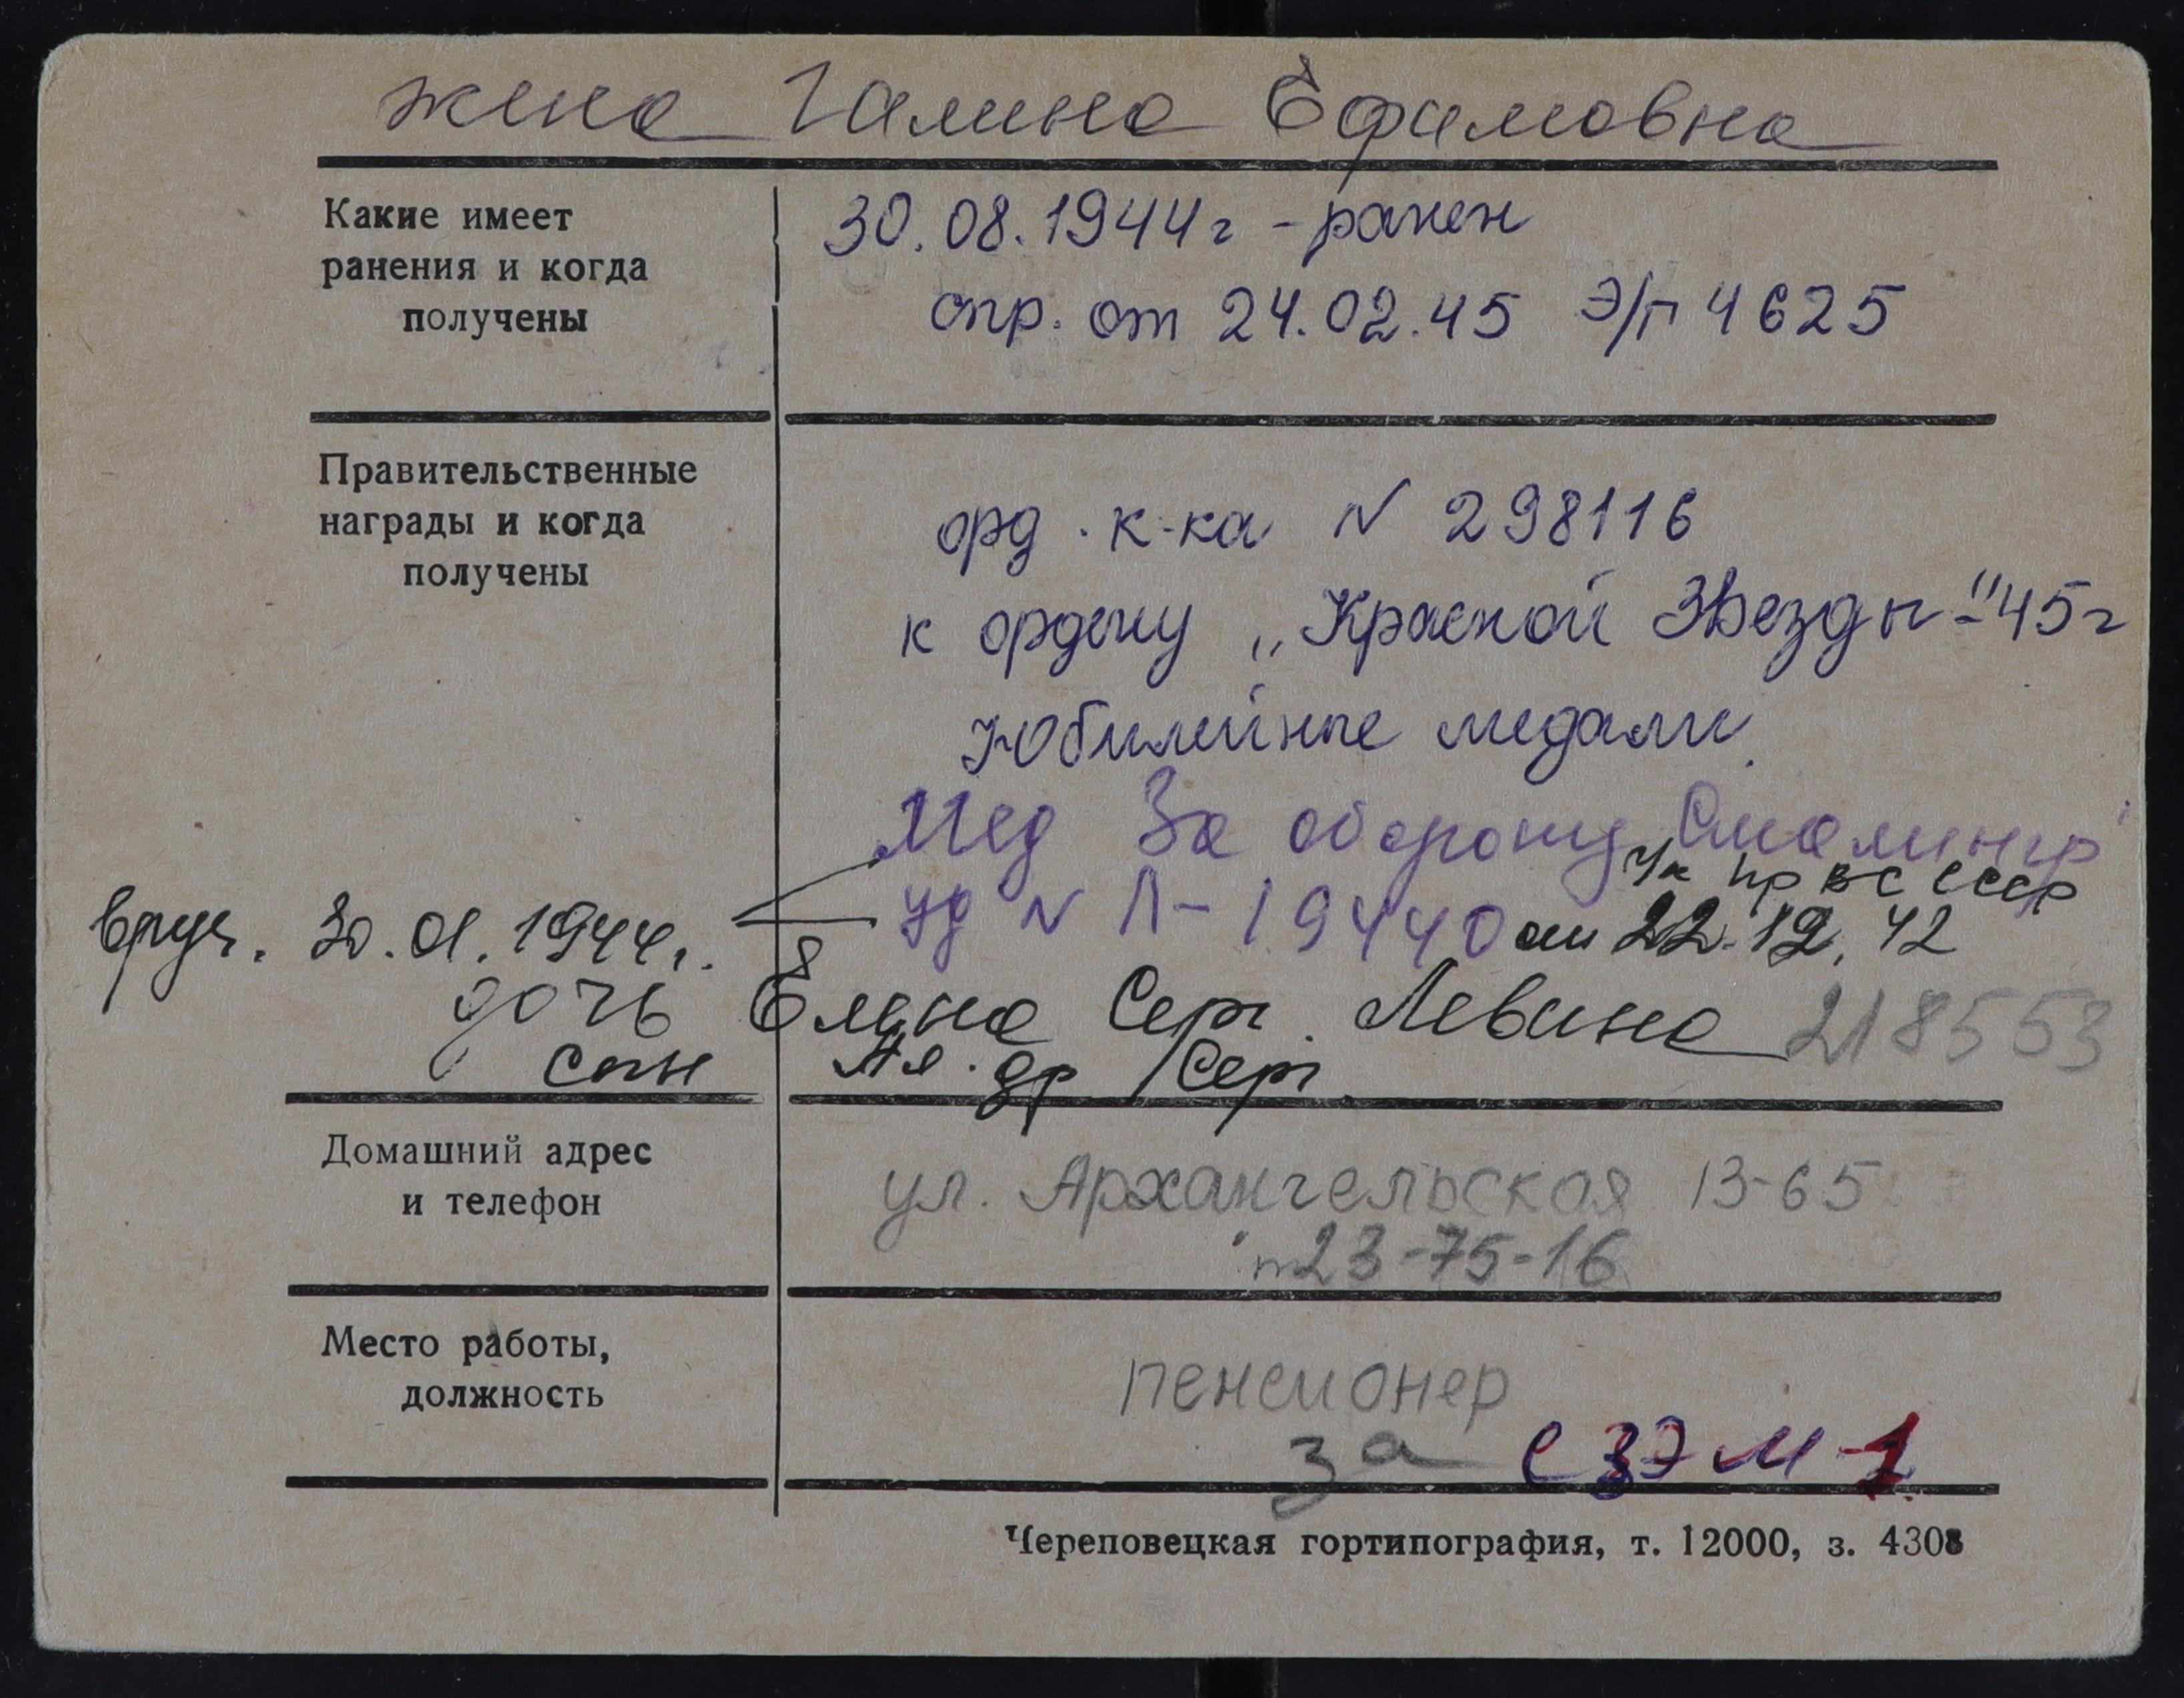 жена Галина Ефимовна
Какие имеет
ранения и когда
получены
30.08.1944г - ранен
спр. от 24.02.45 э/г 4625
Правительственные
награды и когда
получены
орд. к-ка N 298116
к ордену „Красной Звезды"-45г
Юбилейные медали
Мед За оборону Сталингр"
Ук Пр ВС СССР
вруч. 30.01.1944г.
уд N Л-19440 от 22.12.42
дочь Елена Серг. Левина 218553
сын Ал-др Серг.
Домашний адрес
и телефон
ул. Архангельская 13-65
т 23-75-16
Место работы,
должность
пенсионер
за СЗЭМ-1
Череповецкая гортипография, т. 12000, з. 4308